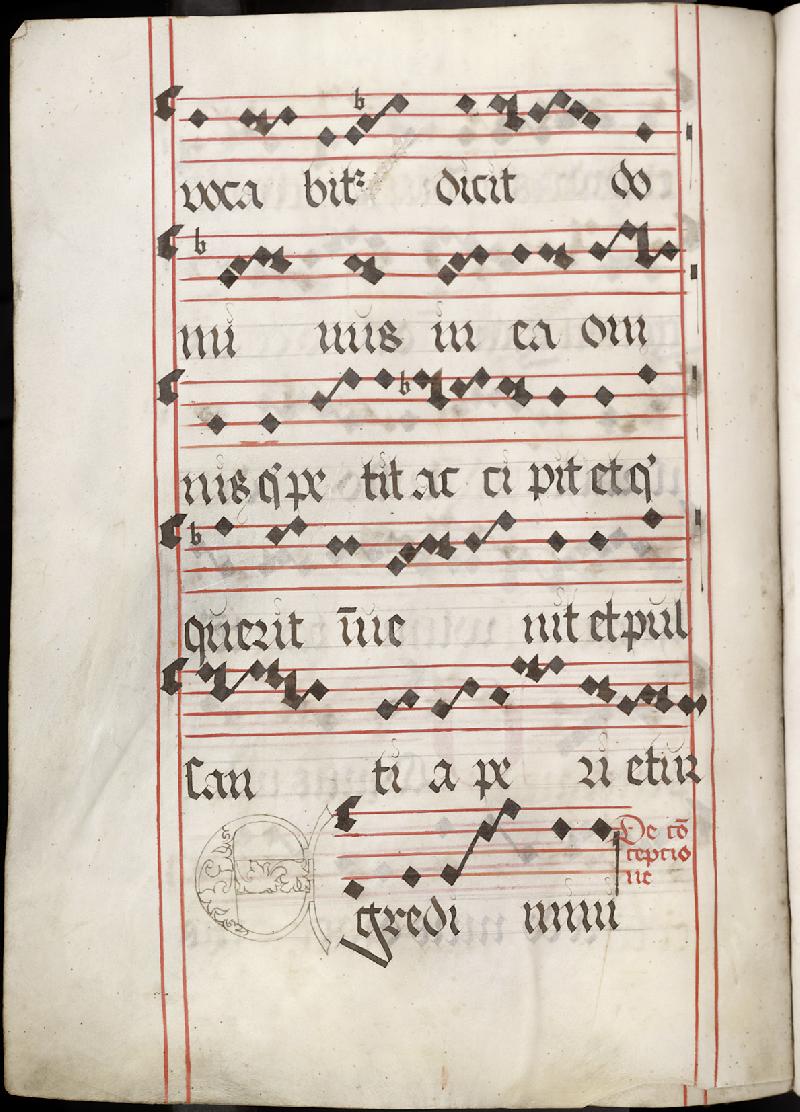 voca bitꝛ dicit do
mi nus in ea om
nis q̇ pe tit ac ci pit et q̇
querit īue nit et pul
san ti a pe ri etur
Egredi mini
De cō
ceptio
ne